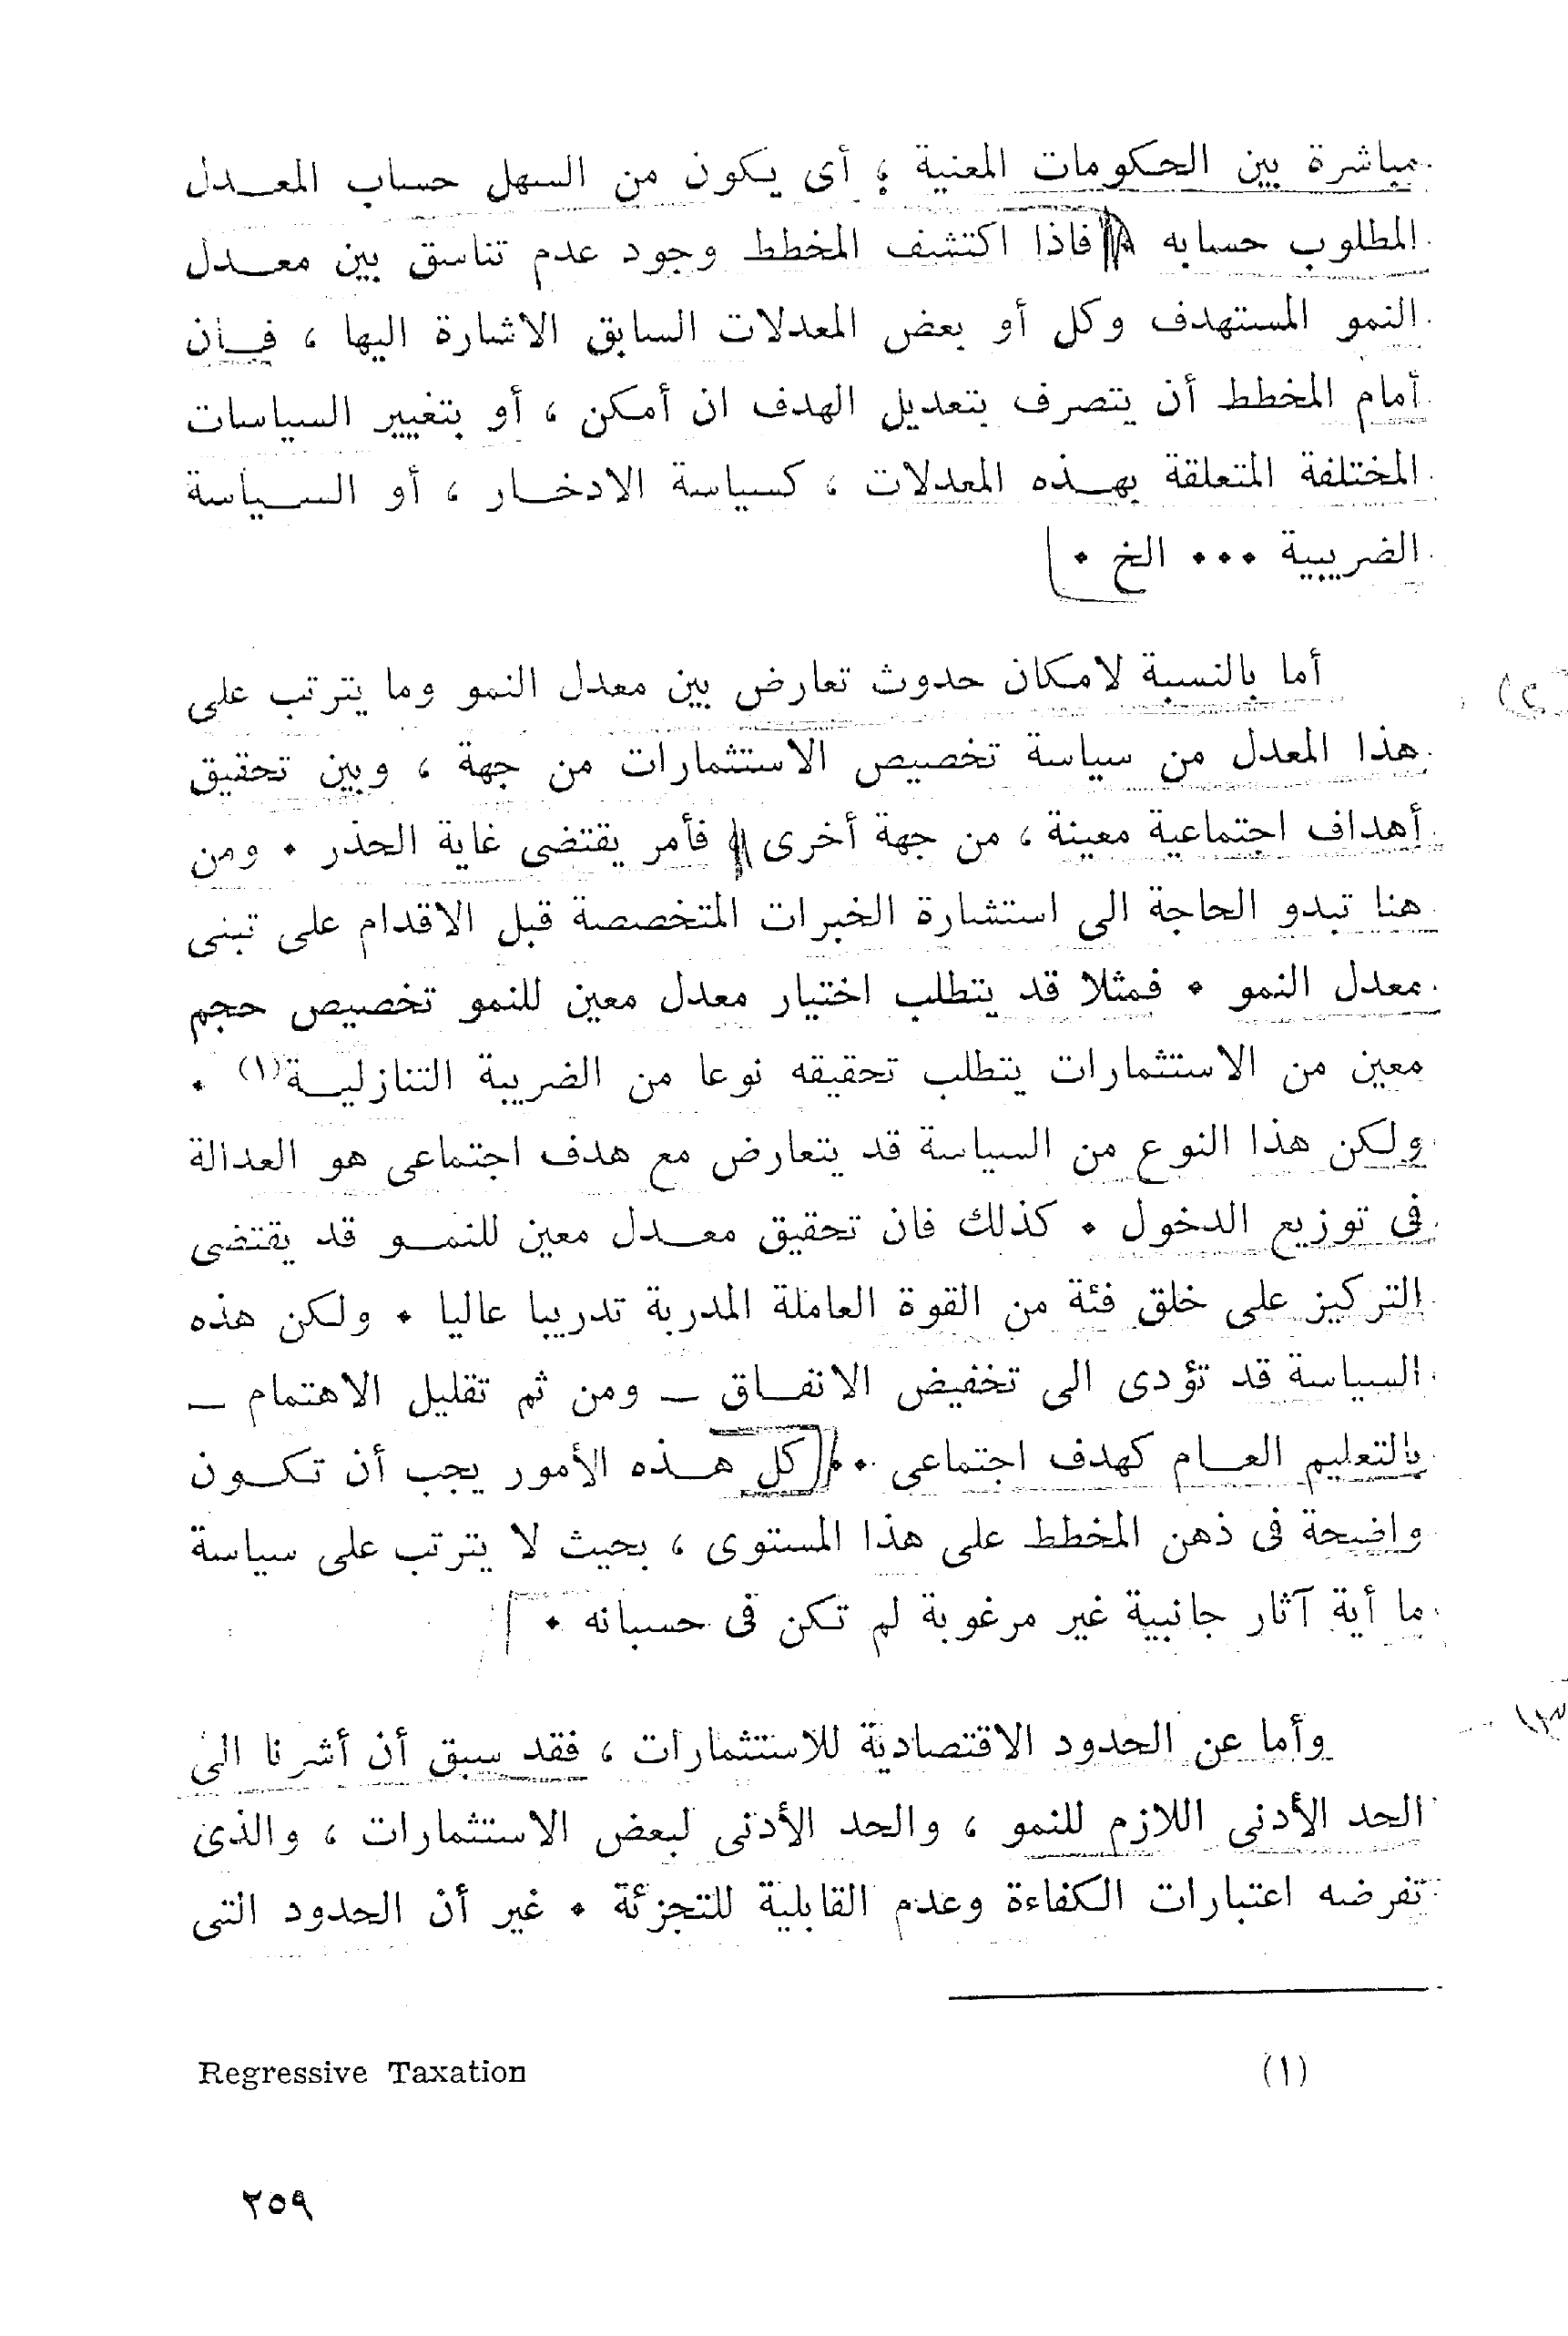 مباشرة بين الحكومات المعنية ، أى يكون من السهل حساب المعدل
المطلوب حسابه فاذا اكتشف المخطط وجود عدم تناسق بين معدل
النمو المستهدف وكل أو بعض المعدلات السابق الاشارة اليها ، فان
أمام المخطط أن يتصرف بتعديل الهدف ان أمكن ، أو بتغيير السياسات
المختلفة المتعلقة بهذه المعدلات ، كسياسة الادخار ، أو السياسة
الضريبية ... الخ .
أما بالنسبة لامكان حدوث تعارض بين معدل النمو وما يترتب على
هذا المعدل من سياسة تخصيص الاستثمارات من جهة ، وبين تحقيق
أهداف اجتماعية معينة ، من جهة أخرى فأمر يقتضى غاية الحذر . ومن
هنا تبدو الحاجة الى استشارة الخبرات المتخصصة قبل الاقدام على تبنى
معدل النمو . فمثلا قد يتطلب اختيار معدل معين للنمو تخصيص حجم
معين من الاستثمارات يتطلب تحقيقه نوعا من الضريبة التنازلية(١) .
ولكن هذا النوع من السياسة قد يتعارض مع هدف اجتماعى هو العدالة
فى توزيع الدخول . كذلك فان تحقيق معدل معين للنمو قد يقتضى
التركيز على خلق فئة من القوة العاملة المدربة تدريبا عاليا . ولكن هذه
السياسة قد تؤدى الى تخفيض الانفاق — ومن ثم تقليل الاهتمام —
بالتعليم العام كهدف اجتماعى .. كل هذه الأمور يجب أن تكون
واضحة فى ذهن المخطط على هذا المستوى ، بحيث لا يترتب على سياسة
ما أية آثار جانبية غير مرغوبة لم تكن فى حسبانه .
وأما عن الحدود الاقتصادية للاستثمارات ، فقد سبق أن أشرنا الى
الحد الأدنى اللازم للنمو ، والحد الأدنى لبعض الاستثمارات ، والذى
تفرضه اعتبارات الكفاءة وعدم القابلية للتجزئة . غير أن الحدود التى
(١) Regressive Taxation
٢٥٩